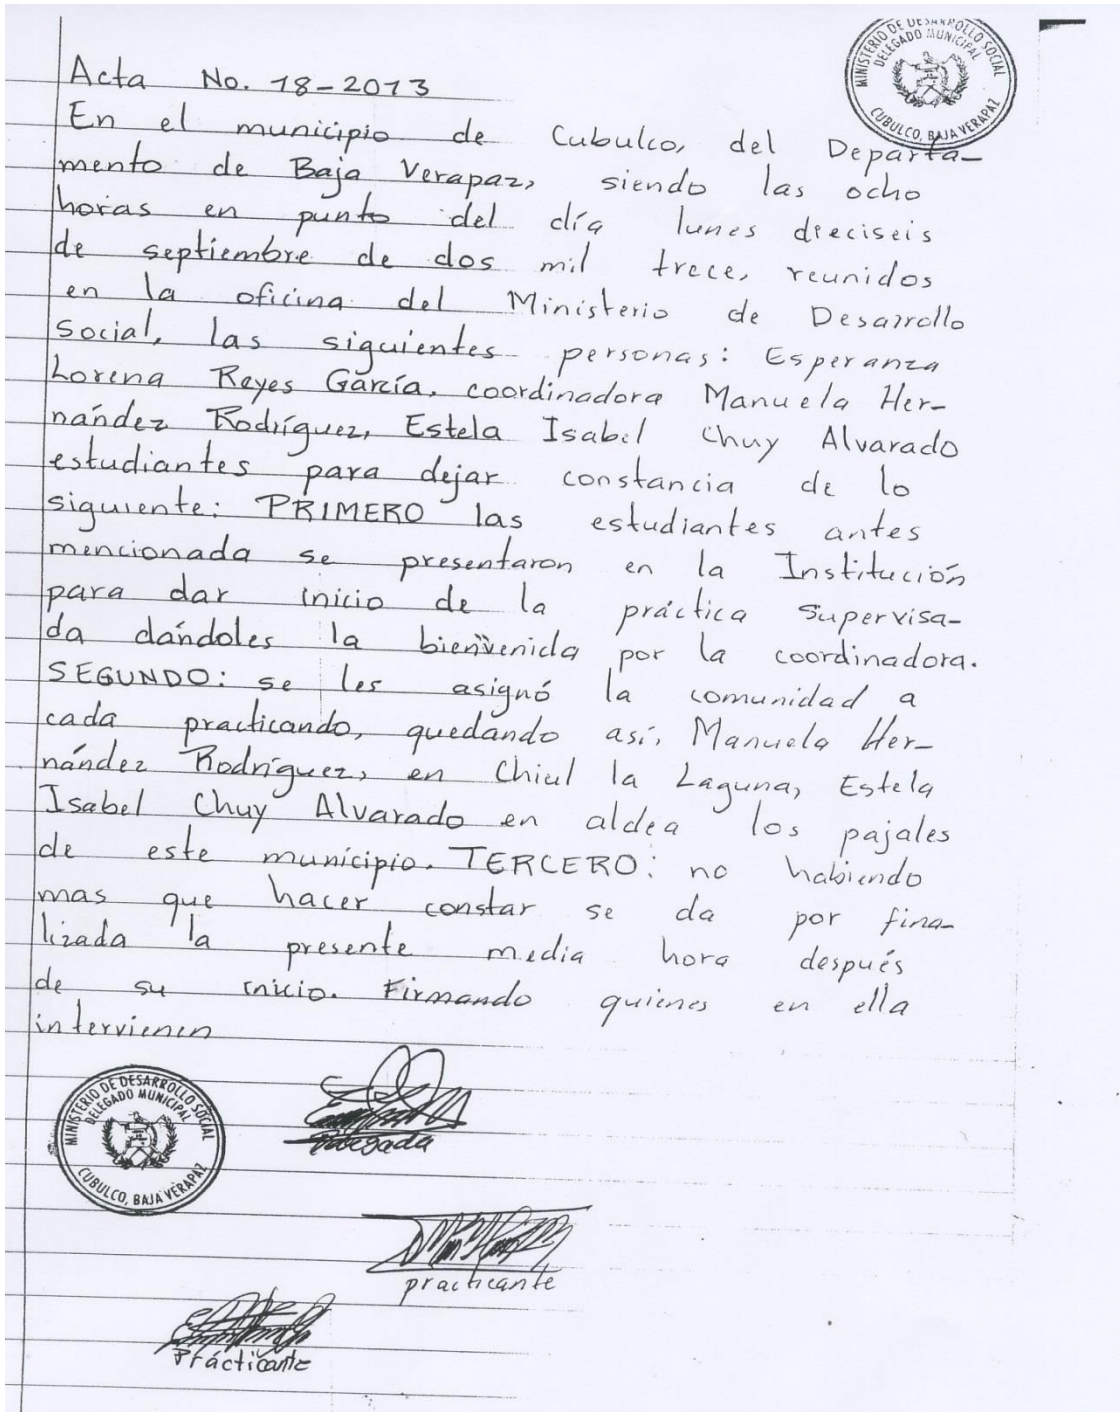 MINISTERIO DE DESARROLLO SOCIAL
DELEGADO MUNICIPAL
CUBULCO, BAJA VERAPAZ
Acta No. 18-2013
En el municipio de Cubulco, del Departa-
mento de Baja Verapaz, siendo las ocho
horas en punto del día lunes dieciseis
de septiembre de dos mil trece, reunidos
en la oficina del Ministerio de Desarrollo
Social, las siguientes personas: Esperanza
Lorena Reyes García, coordinadora Manuela Her-
nández Rodríguez, Estela Isabel Chuy Alvarado
estudiantes para dejar constancia de lo
siguiente: PRIMERO las estudiantes antes
mencionada se presentaron en la Institución
para dar inicio de la práctica supervisa-
da dándoles la bienvenida por la coordinadora.
SEGUNDO: se les asignó la comunidad a
cada practicando, quedando así, Manuela Her-
nández Rodríguez, en Chiul la Laguna, Estela
Isabel Chuy Alvarado en aldea los pajales
de este municipio. TERCERO: no habiendo
mas que hacer constar se da por fina-
lizada la presente media hora después
de su inicio. Firmando quienes en ella
intervienen
MINISTERIO DE DESARROLLO SOCIAL
DELEGADO MUNICIPAL
CUBULCO, BAJA VERAPAZ
practicante
Prácticante